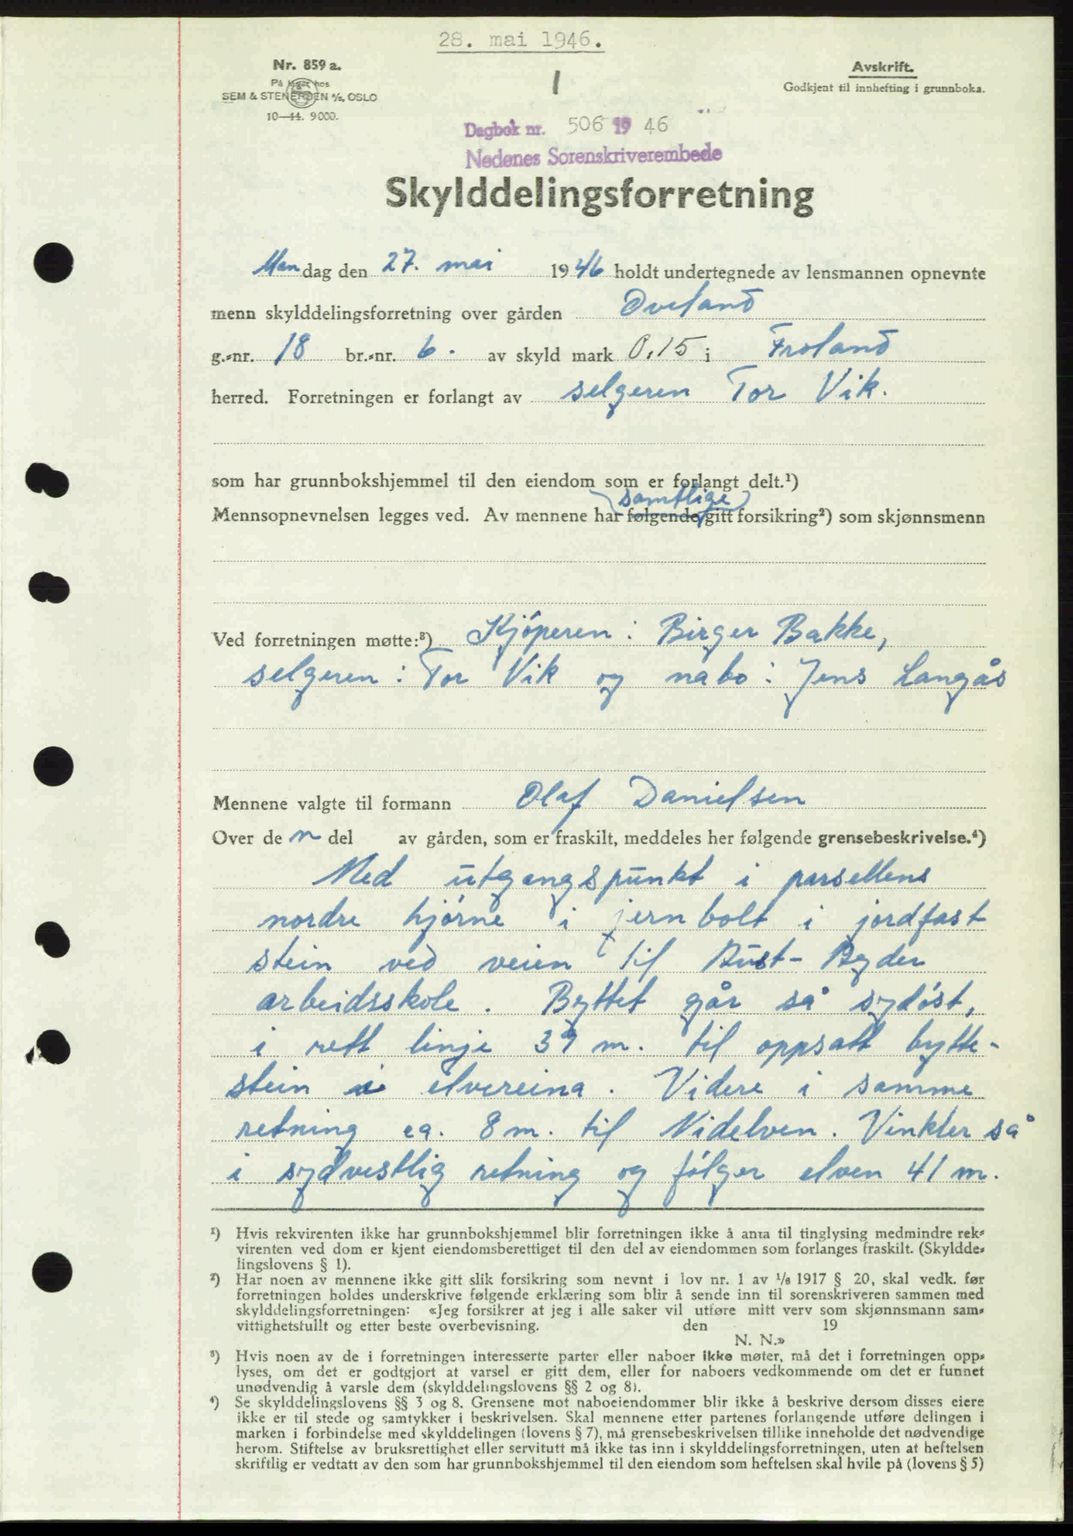 28. mai 1946.
Nr. 859 a.
På lager hos
SEM & STENERSEN A/S, OSLO
10—44. 9000.
1
Avskrift.
Godkjent til innhefting i grunnboka.
Dagbok nr. 506 19 46
Nedenes Sorenskriverembede
Skylddelingsforretning
Mandag den 27. mai 1946 holdt undertegnede av lensmannen opnevnte
menn skylddelingsforretning over gården Øveland
g.-nr. 18 br.-nr. 6. av skyld mark 0,15 i Froland
herred. Forretningen er forlangt av selgeren Tor Vik.
som har grunnbokshjemmel til den eiendom som er forlangt delt.¹)
samtlige
Mennsopnevnelsen legges ved. Av mennene har følgende gitt forsikring²) som skjønnsmenn
Ved forretningen møtte:³) Kjøperen: Birger Bakke,
selgeren: Tor Vik og nabo: Jens Langås
Mennene valgte til formann Olaf Danielsen
Over de n del av gården, som er fraskilt, meddeles her følgende grensebeskrivelse.⁴)
Med utgangspunkt i parsellens
nordre hjørne i jernbolt i jordfast
stein ved veien til Aust-Agder
arbeidsskole. Byttet går så sydøst,
i rett linje 39 m. til oppsatt bytte-
stein i elvereina. Videre i samme
retning ca. 8 m. til Nidelven. Vinkler så
i sydvestlig retning og følger elven 41 m.
¹) Hvis rekvirenten ikke har grunnbokshjemmel blir forretningen ikke å anta til tinglysing medmindre rek-
virenten ved dom er kjent eiendomsberettiget til den del av eiendommen som forlanges fraskilt. (Skyldde-
lingslovens § 1).
²) Har noen av mennene ikke gitt slik forsikring som nevnt i lov nr. 1 av 1/8 1917 § 20, skal vedk. før
forretningen holdes underskrive følgende erklæring som blir å sende inn til sorenskriveren sammen med
skylddelingsforretningen: «Jeg forsikrer at jeg i alle saker vil utføre mitt verv som skjønnsmann sam-
vittighetsfullt og etter beste overbevisning. den 19
N. N.»
³) Hvis noen av de i forretningen interesserte parter eller naboer ikke møter, må det i forretningen opp-
lyses, om det er godtgjort at varsel er gitt dem, eller for naboers vedkommende om det er funnet
unødvendig å varsle dem (skylddelingslovens §§ 2 og 8).
⁴) Se skylddelingslovens §§ 3 og 8. Grensene mot naboeiendommer blir ikke å beskrive dersom disses eiere
ikke er til stede og samtykker i beskrivelsen. Skal mennene etter partenes forlangende utføre delingen i
marken i forbindelse med skylddelingen (lovens § 7), må grensebeskrivelsen tillike inneholde det nødvendige
herom. Stiftelse av bruksrettighet eller servitutt må ikke tas inn i skylddelingsforretningen, uten at heftelsen
skriftlig er vedtatt av den som har grunnbokshjemmel til den eiendom som heftelsen skal hvile på (lovens § 5)